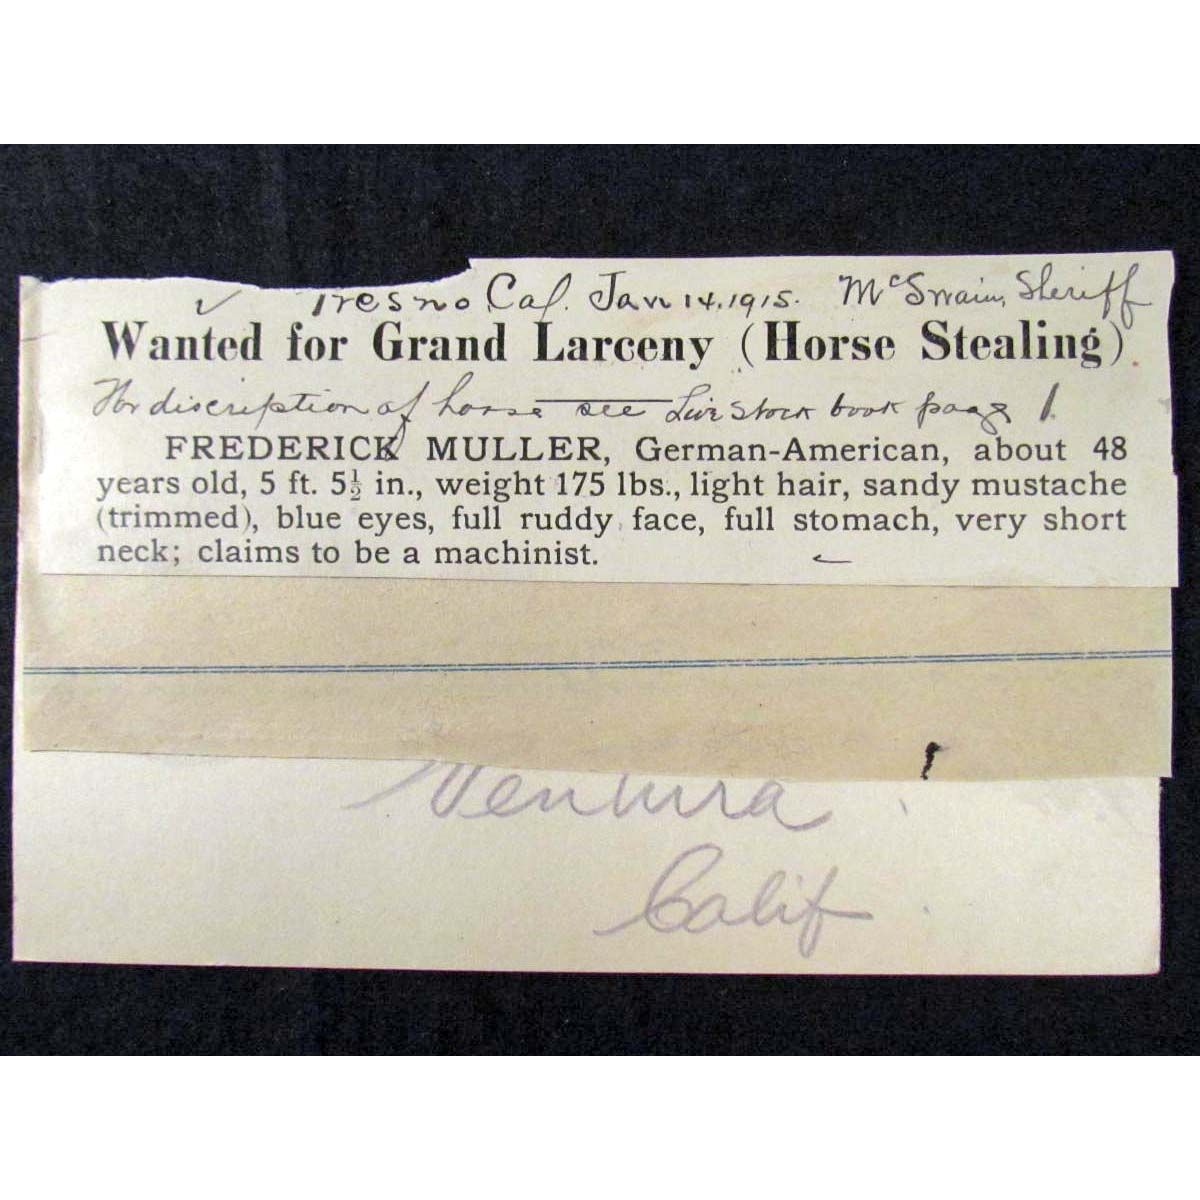 ✓ Fresno Cal. Jan 14, 1915. McSwain, Sheriff
Wanted for Grand Larceny (Horse Stealing).
For discription of horse see Live Stock book page 1
FREDERICK MULLER, German-American, about 48
years old, 5 ft. 5½ in., weight 175 lbs., light hair, sandy mustache
(trimmed), blue eyes, full ruddy face, full stomach, very short
neck; claims to be a machinist.
Ventura
Calif